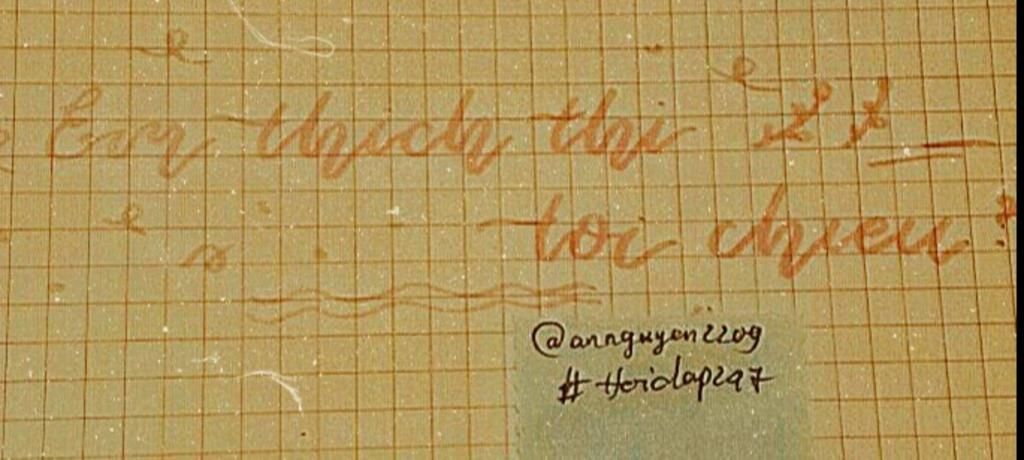 Em thich thi
toi chieu
@annguyen2209
#Hoidap247